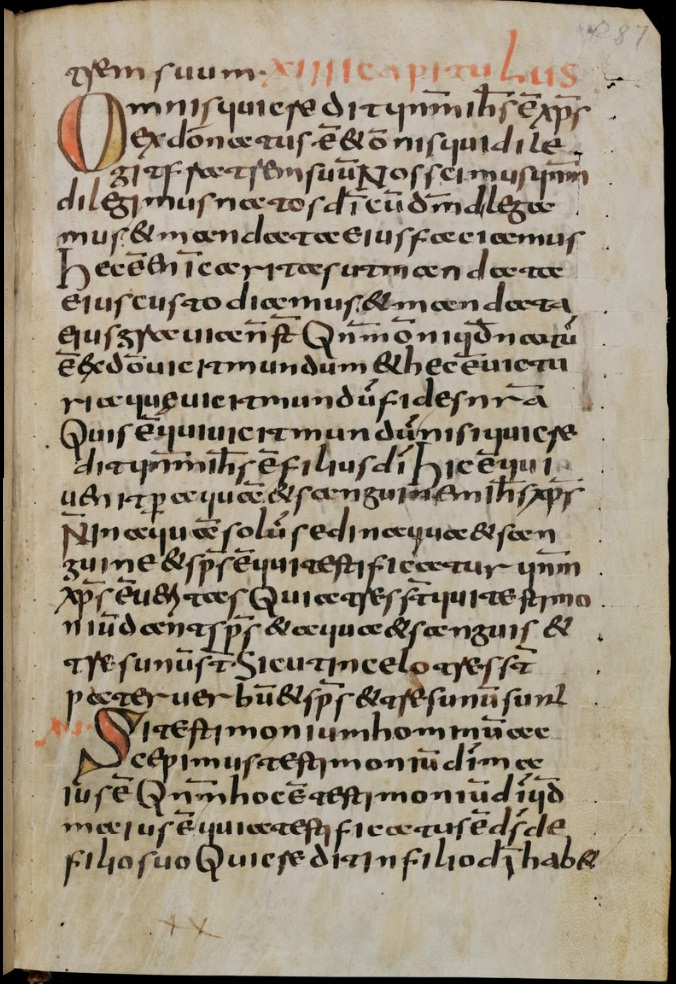 287
trem suum. XIIII capitulus
Omnis qui credit qnm ihs ē xps
ex dō natus ē & ōnis qui dile
git fratrem suū Nos scimus qnm
diligimus natos dī cū dm dilega
mus & mandata eius faciamus
Hec ē enī caritas ut mandata
eius custodiamus & mandata
eius gravia n st Qnm ōni qd natū
ē ex dō vicit mundum & hec ē victu
ria que vicit mundū fides nra
Quis ē qui vicit mundū nisi qui cre
dit qnm ihs ē filius dī Hic ē qui
venit p aqua & sanguinem ihs xps
N in aqua solū sed in aqua & san
guine & sps ē qui testificatur qnm
xps ē veritas Quia tres st qui testimo
niū dant sps & aqua & sanguis &
tres unū st Sicut in celo tres st
pater verbū & sps & tres unū sunt
XV Si testimonium hominū ac
cepimus testimoniū dī ma
ius ē Qnm hoc ē testimoniū dī qd
maius ē quia testificatus ē ds de
filio suo Qui credit in filio dī hab&
xx